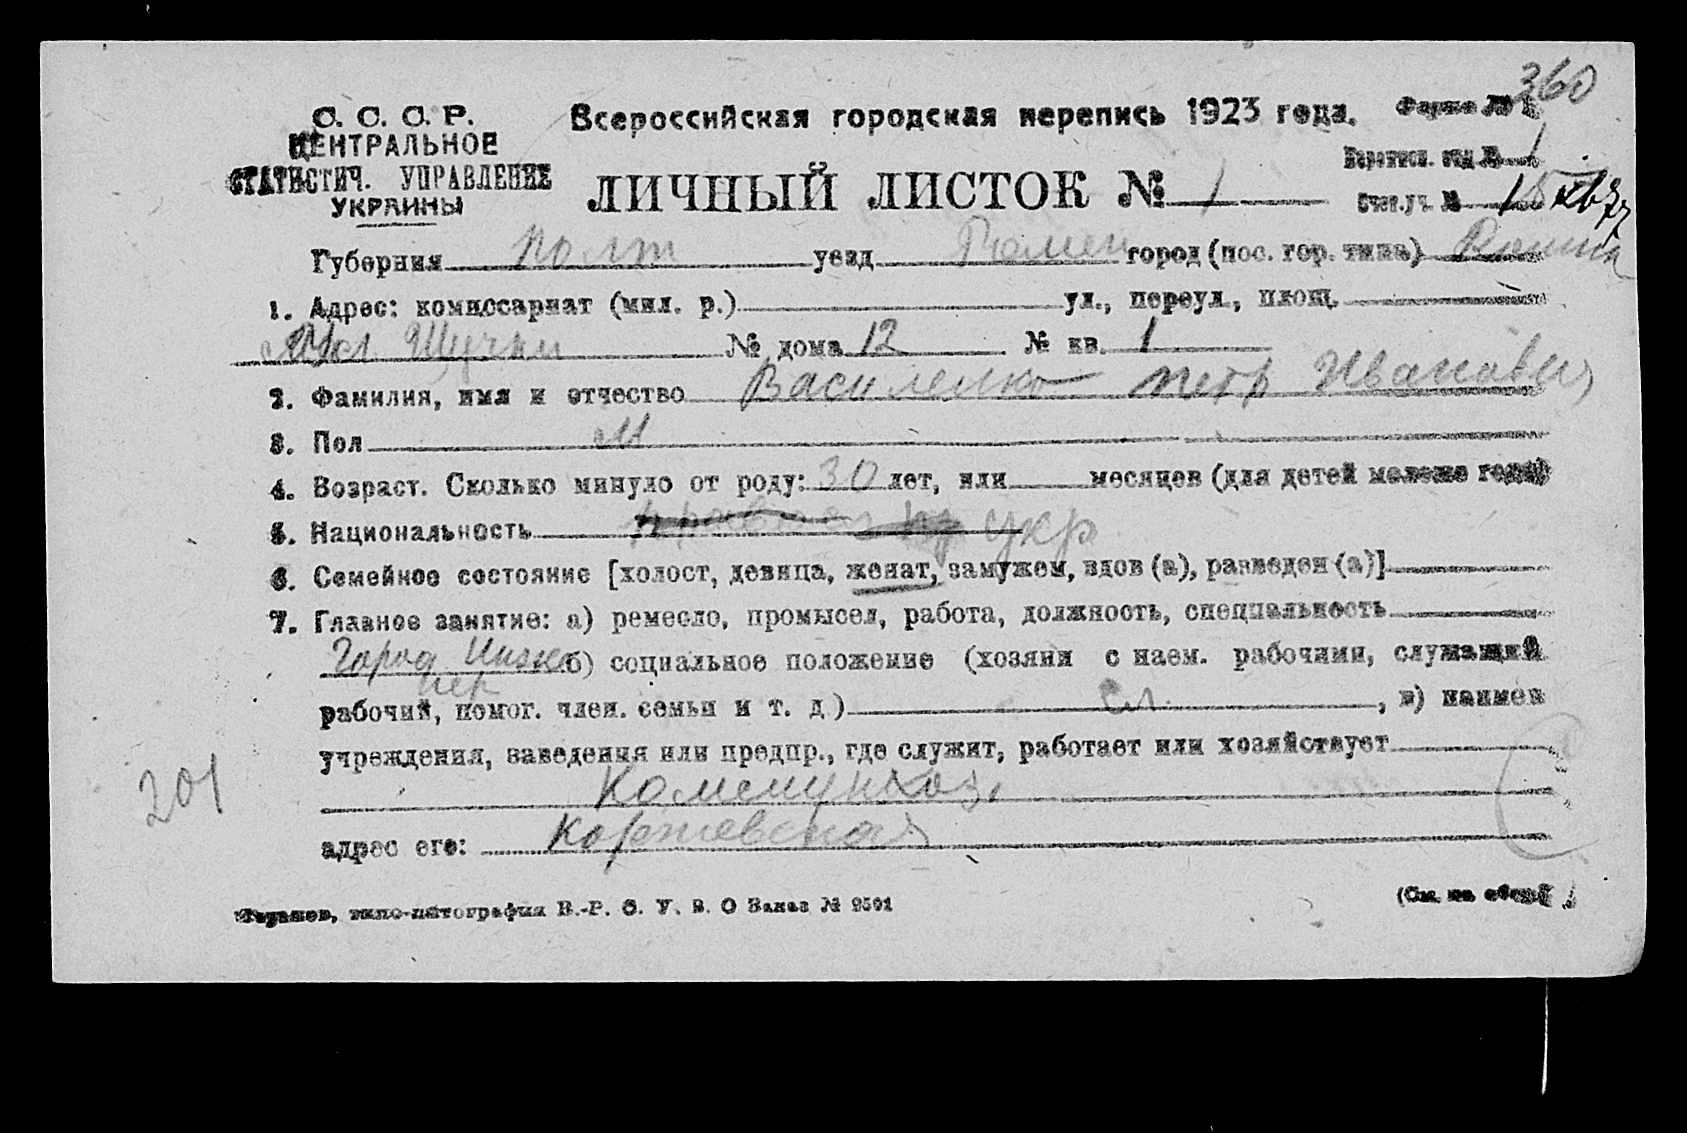 360
С. С. С. Р.
ЦЕНТРАЛЬНОЕ
СТАТИСТИЧ. УПРАВЛЕНИЕ
УКРАИНЫ
Всероссийская городская перепись 1923 года.
Форма № 1
ЛИЧНЫЙ ЛИСТОК № 1
Переписн. отд № 1
Счет. уч. № 15
Губерния Полт уезд Ромен город (пос. гор. типа) Ромны
1. Адрес: комиссариат (мил. р.) ул., переул., площ.
№ дома 12 № кв. 1
2. Фамилия, имя и отчество Василенко Петр Иванович
3. Пол М
4. Возраст. Сколько минуло от роду: 30 лет, или месяцев (для детей моложе года)
5. Национальность укр
6. Семейное состояние [холост, девица, женат, замужем, вдов (а), разведен (а)]
7. Главное занятие: а) ремесло, промысел, работа, должность, специальность
Город Инже б) социальное положение (хозяин с наем. рабочими, служащий
нер
рабочий, помог. член. семьи и т. д) сл. , в) наимен
учреждения, заведения или предпр., где служит, работает или хозяйствует
Коммунхоз,
адрес его: Коржевская
201
типо-литография В.-Р. С. У. В. О Заказ № 9501
(См. на обор)